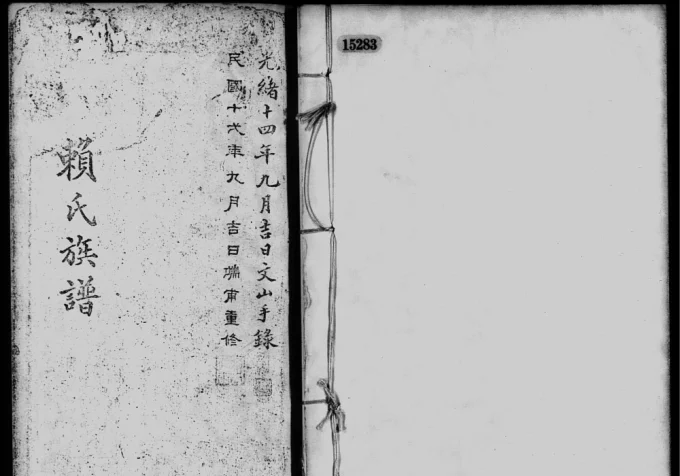 15283
光緒十四年九月吉日文山手錄
民國十弍年九月吉日瑞甫重修
賴氏族譜